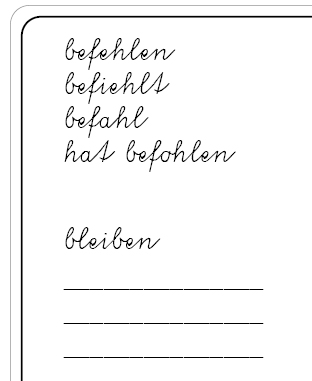 befehlen
befiehlt
befahl
hat befohlen
bleiben